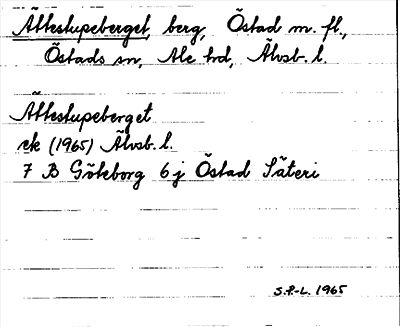 Ättestupeberget, berg, Östad m. fl.,
Östads sn, Ale hd, Älvsb. l.
Ättestupeberget
ek (1965) Älvsb. l.
7 B Göteborg 6 j Östad Säteri
S.P.-L. 1965